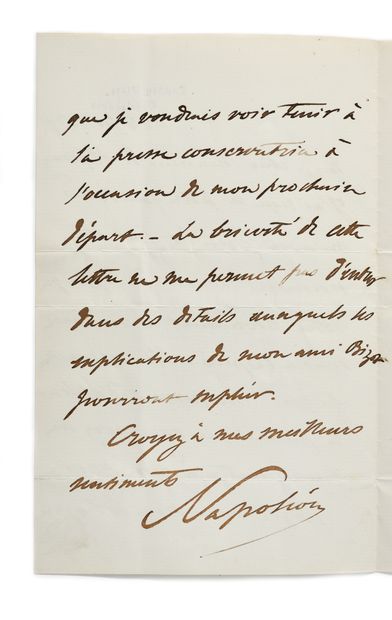 que je voudrais voir tenir à
la presse conservatrice à
l'occasion de mon prochain
départ. – La brièveté de cette
lettre ne me permet pas d'entrer
dans des détails auxquels les
explications de mon ami
pourront suppléer.
Croyez à mes meilleurs
sentiments
Napoléon